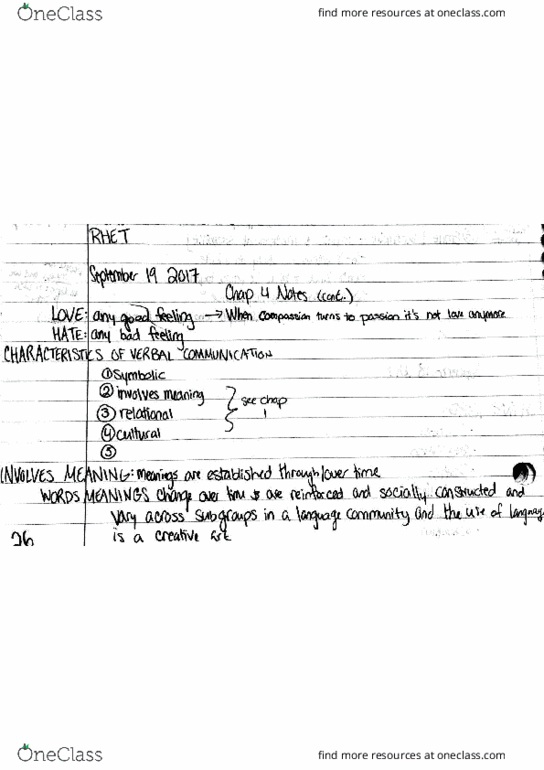 OneClass
find more resources at oneclass.com
RHET
September 19 2017
Chap 4 Notes (cont.)
LOVE: any good feeling → When compassion turns to passion it's not love anymore
HATE: any bad feeling
CHARACTERISTICS OF VERBAL COMMUNICATION
① Symbolic
② involves meaning
see chap 1
③ relational
④ cultural
⑤
INVOLVES MEANING: meanings are established through/over time
WORDS MEANINGS change over time & are reinforced and socially constructed and
vary across subgroups in a language community and the use of language
is a creative art
26
OneClass
find more resources at oneclass.com